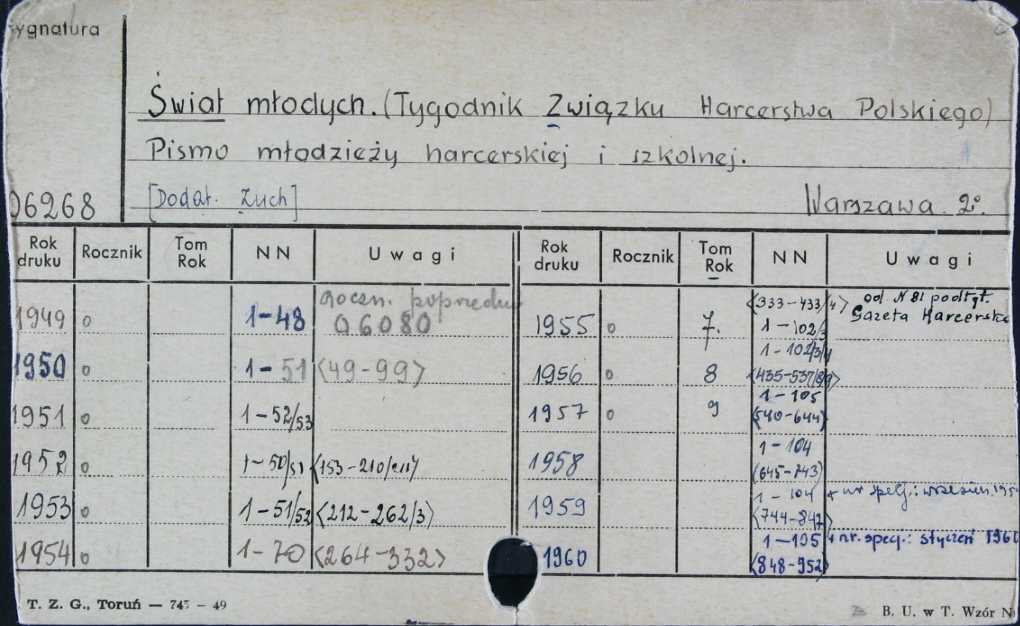 ygnatura
Świat młodych. (Tygodnik Związku Harcerstwa Polskiego)
Pismo młodzieży harcerskiej i szkolnej.
06268 [Dodat. Zuch] Warszawa. 2°.
Rok druku Rocznik Tom Rok NN Uwagi Rok druku Rocznik Tom Rok NN Uwagi
1949 o 1-48 roczn. poprzedn. 06080 1955 o 7. <333-433/4> 1-102/3 od N 81 podtyt. Gazeta Harcerska
1950 o 1-51 <49-99> 1956 o 8 1-102/3/4 <435-537/8/9>
1951 o 1-52/53 1957 o 9 1-105 <540-644>
1952 o 1-50/51 <153-210/ 1958 1-104 <645-743>
1953 o 1-51/52 <212-262/3> 1959 1-104 <744-847> + nr specj.: wrzesień.195
1954 o 1-70 <264-332> 1960 1-105 <848-952> + nr. specj.: styczeń 1960
T. Z. G., Toruń — 745 - 49 B. U. w T. Wzór N